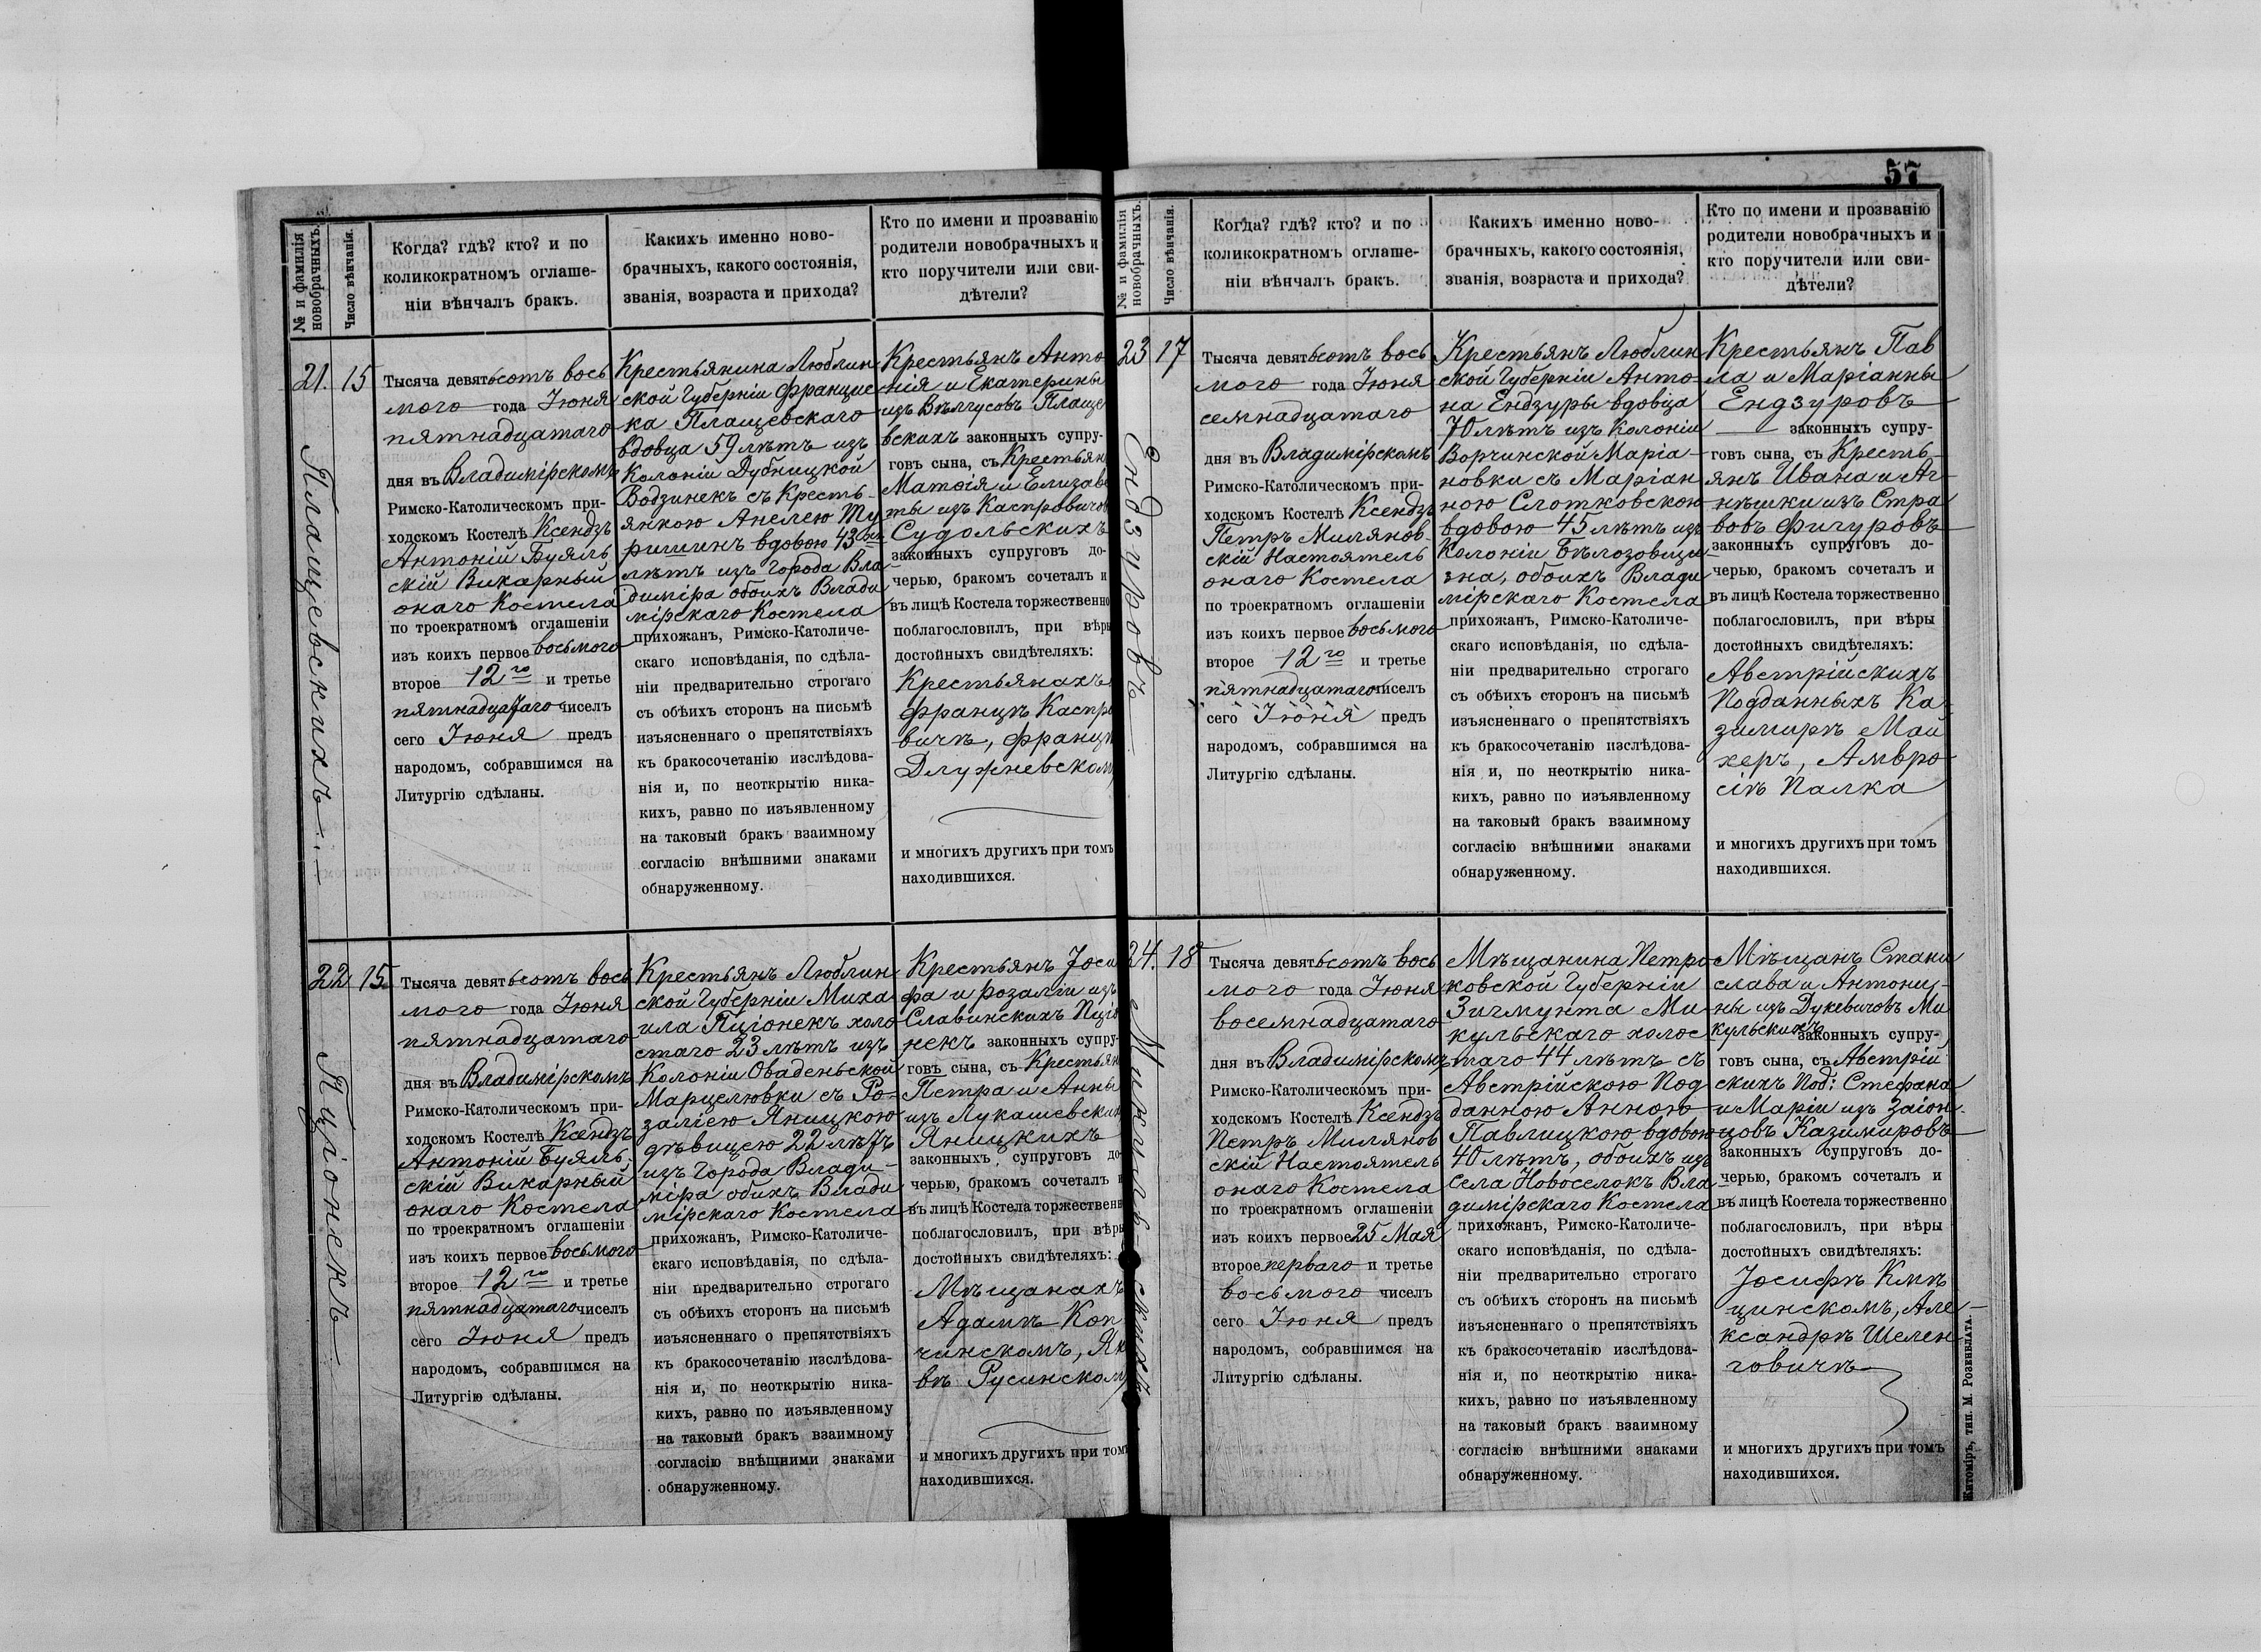 № и фамилія
новобрачныхъ.
Число вѣнчанія.
Когда? гдѣ? кто? и по
коликократномъ оглаше-
ніи вѣнчалъ бракъ.
Какихъ именно ново-
брачныхъ, какого состоянія,
званія, возраста и прихода?
Кто по имени и прозванію
родители новобрачныхъ и
кто поручители или сви-
дѣтели?
21.
Плащевскихъ
15
Тысяча девятьсотъ вось
мого года Іюня
пятнадцатаго
дня въ Владимірскомъ
Римско-Католическомъ при-
ходскомъ Костелѣ Ксендзъ
Антоній Буяль
скій Викарный
онаго Костела
по троекратномъ оглашеніи
изъ коихъ первое восьмого
второе 12го и третье
пятнадцатаго чиселъ
сего Іюня предъ
народомъ, собравшимся на
Литургію сдѣланы.
Крестьянина Люблин
ской Губерніи Францис
ка Плащевскаго
вдовца 59 лѣтъ изъ
Колоніи Дубницкой
Водзинекъ съ Кресть-
янкою Анелею Ту
ришинъ вдовою 43хъ
лѣтъ изъ города Вла
диміра обоихъ Влади
мірскаго Костела
прихожанъ, Римско-Католиче-
скаго исповѣданія, по сдѣла-
ніи предварительно строгаго
съ обѣихъ сторонъ на письмѣ
изъясненнаго о препятствіяхъ
къ бракосочетанію изслѣдова-
нія и, по неоткрытію ника-
кихъ, равно по изъявленному
на таковый бракъ взаимному
согласію внѣшними знаками
обнаруженному.
Крестьянъ Анто
нія и Екатерины
изъ Плаще
вскихъ законныхъ супру-
говъ сына, съ Крестьян
Матѳія и Елизаве
ты изъ Каспровичов
Судольскихъ
законныхъ супруговъ до-
черью, бракомъ сочеталъ и
въ лицѣ Костела торжественно
поблагословилъ, при вѣры
достойныхъ свидѣтеляхъ:
Крестьянахъ
Францѣ Каспро
вичѣ, Францѣ
Длужневском
и многихъ другихъ при томъ
находившихся.
22
Пціонекъ
15
Тысяча девятьсотъ вось
мого года Іюня
пятнадцатаго
дня въ Владимірскомъ
Римско-Католическомъ при-
ходскомъ Костелѣ Ксендзъ
Антоній Буяль-
скій Викарный
онаго Костела
по троекратномъ оглашеніи
изъ коихъ первое восьмого
второе 12го и третье
пятнадцатаго чиселъ
сего Іюня предъ
народомъ, собравшимся на
Литургію сдѣланы.
Крестьянъ Люблин
ской Губерніи Миха
ила Пціонекъ холо
стаго 23 лѣтъ изъ
Колоніи Оваденьской
Марцелювки съ Ро-
заліею Яницкою
дѣвицею 22 лѣтъ
изъ города Влади-
міра обоихъ Влади
мірскаго Костела
прихожанъ, Римско-Католиче-
скаго исповѣданія, по сдѣла-
ніи предварительно строгаго
съ обѣихъ сторонъ на письмѣ
изъясненнаго о препятствіяхъ
къ бракосочетанію изслѣдова-
нія и, по неоткрытію ника-
кихъ, равно по изъявленному
на таковый бракъ взаимному
согласію внѣшними знаками
обнаруженному.
Крестьянъ Іоси
фа и Розаліи изъ
Славинскихъ Пціо
некъ законныхъ супру-
говъ сына, съ Крестьян
Петра и Анны
изъ Лукашевских
Яницкихъ
законныхъ супруговъ до-
черью, бракомъ сочеталъ и
въ лицѣ Костела торжественн
поблагословилъ, при вѣры
достойныхъ свидѣтеляхъ:
Мѣщанахъ
Адамѣ Коп
чинскомъ, Як
вѣ Русинском
и многихъ другихъ при томъ
находившихся.
57
№ и фамилія
новобрачныхъ.
Число вѣнчанія.
Когда? гдѣ? кто? и по
коликократномъ оглаше-
ніи вѣнчалъ бракъ.
Какихъ именно ново-
брачныхъ, какого состоянія,
званія, возраста и прихода?
Кто по имени и прозванію
родители новобрачныхъ и
кто поручители или сви-
дѣтели?
23
Ендзуровъ
17
Тысяча девятьсотъ вось
мого года Іюня
семнадцатаго
дня въ Владимірскомъ
Римско-Католическомъ при-
ходскомъ Костелѣ Ксендзъ
Петръ Милянов-
скій Настоятель
онаго Костела
по троекратномъ оглашеніи
изъ коихъ первое восьмого
второе 12го и третье
пятнадцатаго чиселъ
сего Іюня предъ
народомъ, собравшимся на
Литургію сдѣланы.
Крестьянъ Люблин
ской Губерніи Анто-
на Ендзуры вдовца
70 лѣтъ изъ Колоніи
Ворчинской Маріа-
новки съ Маріан
ною Слотковскою
вдовою 45 лѣтъ изъ
Колоніи Бѣлозовщи
зна, обоихъ Влади
мірскаго Костела
прихожанъ, Римско-Католиче-
скаго исповѣданія, по сдѣла-
ніи предварительно строгаго
съ обѣихъ сторонъ на письмѣ
изъясненнаго о препятствіяхъ
къ бракосочетанію изслѣдова-
нія и, по неоткрытію ника-
кихъ, равно по изъявленному
на таковый бракъ взаимному
согласію внѣшними знаками
обнаруженному.
Крестьянъ Пав
ла и Маріанны
Ендзуровъ
законныхъ супру-
говъ сына, съ Кресть-
янъ Ивана и Аг-
нѣшки изъ Стра
вовъ Фигуровъ
законныхъ супруговъ до-
черью, бракомъ сочеталъ и
въ лицѣ Костела торжественно
поблагословилъ, при вѣры
достойныхъ свидѣтеляхъ:
Австрійскихъ
Подданныхъ Ка-
зимирѣ Май
херъ, Амвро
сіѣ Палка
и многихъ другихъ при томъ
находившихся.
24.
Микульскихъ
18
Тысяча девятьсотъ вось
мого года Іюня
восемнадцатаго
дня въ Владимірскомъ
Римско-Католическомъ при-
ходскомъ Костелѣ Ксендзъ
Петръ Милянов
скій Настоятель
онаго Костела
по троекратномъ оглашеніи
изъ коихъ первое 25 Мая
второе перваго и третье
восьмого чиселъ
сего Іюня предъ
народомъ, собравшимся на
Литургію сдѣланы.
Мѣщанина Петро
ковской Губерніи
Зигмунта Ми-
кульскаго холос
таго 44 лѣтъ съ
Австрійскою Под
данною Анною
Павлицкою вдовою
40 лѣтъ, обоихъ изъ
села Новоселокъ Вла
димірскаго Костела
прихожанъ, Римско-Католиче-
скаго исповѣданія, по сдѣла-
ніи предварительно строгаго
съ обѣихъ сторонъ на письмѣ
изъясненнаго о препятствіяхъ
къ бракосочетанію изслѣдова-
нія и, по неоткрытію ника-
кихъ, равно по изъявленному
на таковый бракъ взаимному
согласію внѣшними знаками
обнаруженному.
Мѣщанъ Стани
слава и Антони-
ны изъ Дукевичовъ Ми
кульскихъ законныхъ супру-
говъ сына, съ Австрій
скихъ Под: Стефана
и Маріи изъ Заіон-
цовъ Казимировъ
законныхъ супруговъ до-
черью, бракомъ сочеталъ и
въ лицѣ Костела торжественно
поблагословилъ, при вѣры
достойныхъ свидѣтеляхъ:
Іосифѣ Кмѣ
цинскомъ, Але-
ксандрѣ Шелен
говичѣ
и многихъ другихъ при томъ
находившихся.
Житоміръ, тип. М. Розенблата.